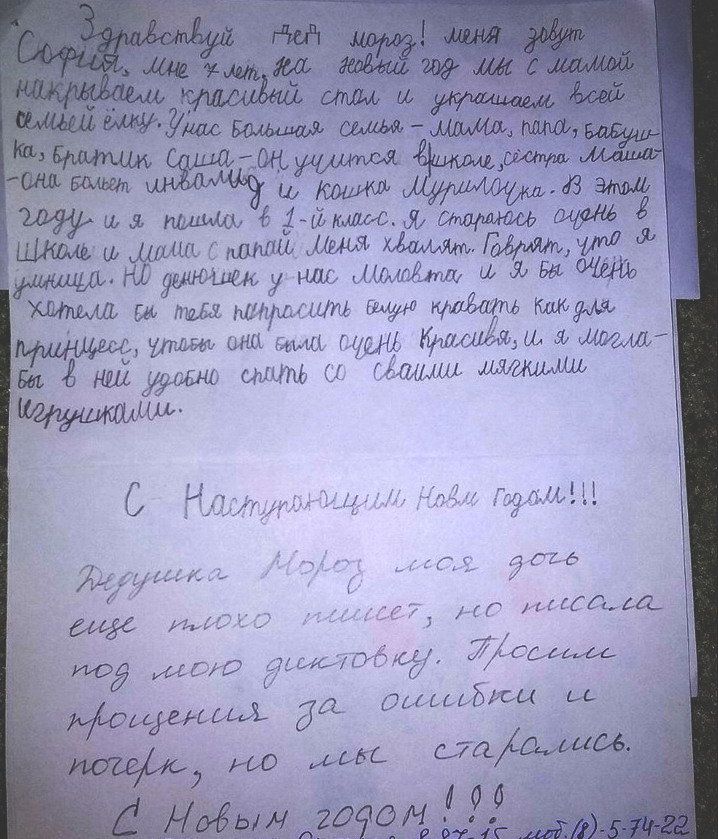 Здравствуй Дед мороз! меня зовут
София, мне 7 лет, на новый год мы с мамой
накрываем красивый стол и украшаем всей
семьей ёлку. У нас большая семья - мама, папа, бабуш-
ка, братик Саша - он учится в школе, сестра Маша -
- она бальет инвалид и кошка Мурилочка. В этом
году и я пошла в 1-й класс. Я стараюсь очень в
школе и мама с папай меня хвалят. Говрят, что я
умница. Но денюшек у нас маловта и я бы очень
хотела бы тебя папрасить белую кравать как для
принцесс, чтобы она была очень красивя, и я могла-
бы в ней удобно спать со сваими мягкими
игрушками.
С Наступающим Новм годом!!!
Дедушка Мороз моя дочь
еще плохо пишет, но писала
под мою диктовку. Просим
прощения за ошибки и
почерк, но мы старались.
С Новым годом!!!
моб.(8)-5-74-22